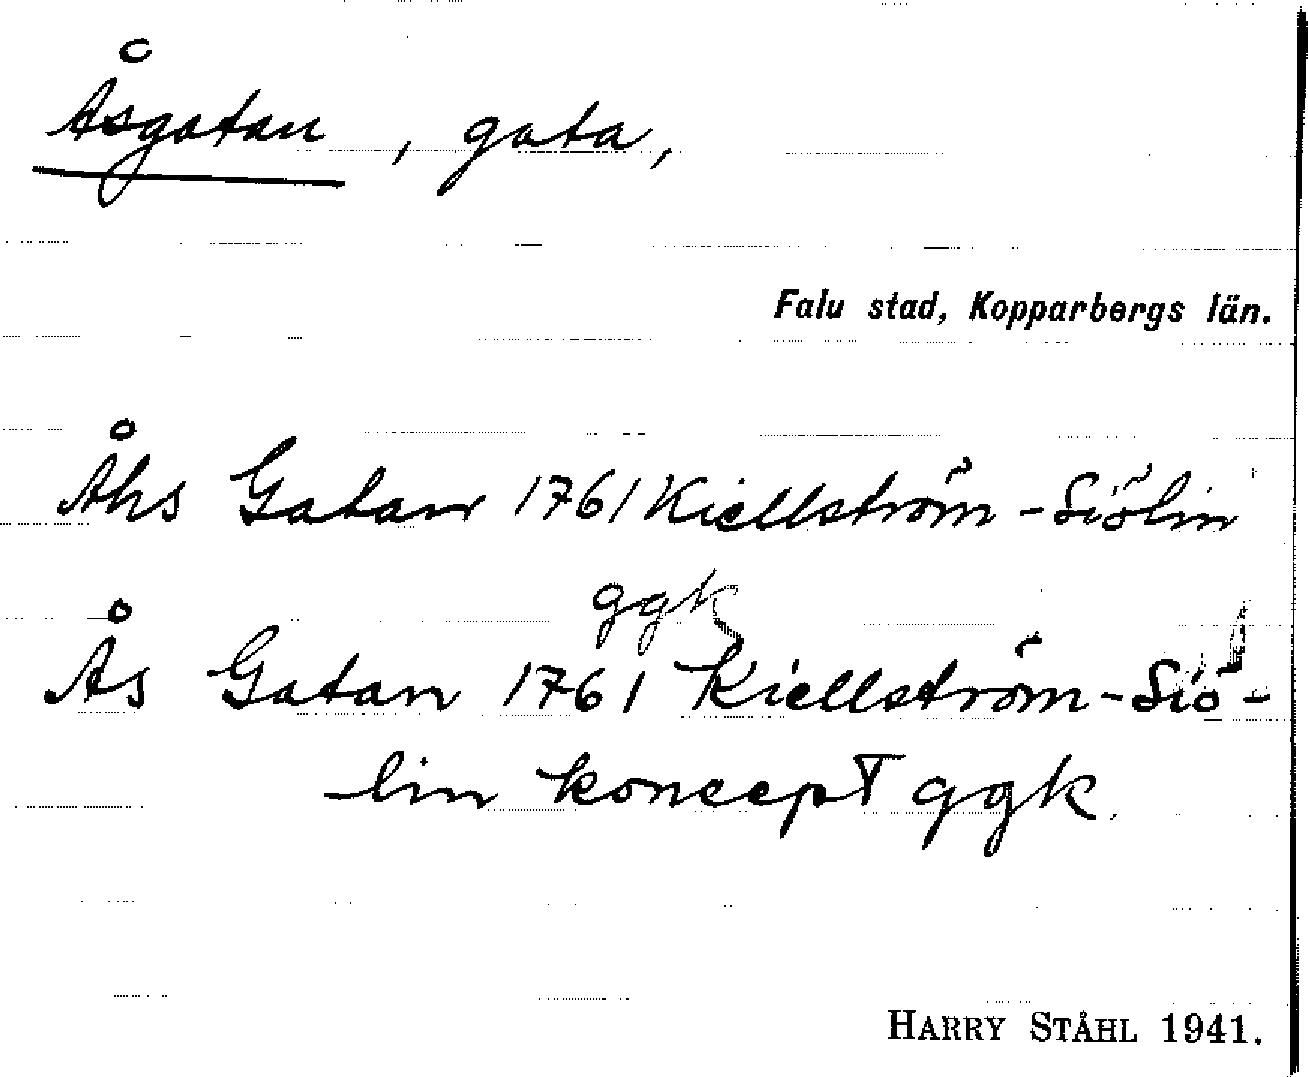 Åsgatan, gata,
Falu stad, Kopparbergs län.
Åhs Gatan 1761 Kiellström-Siölin
ggk
Ås Gatan 1761 Kiellström-Siö-
lin koncept ggk.
HARRY STÅHL 1941.